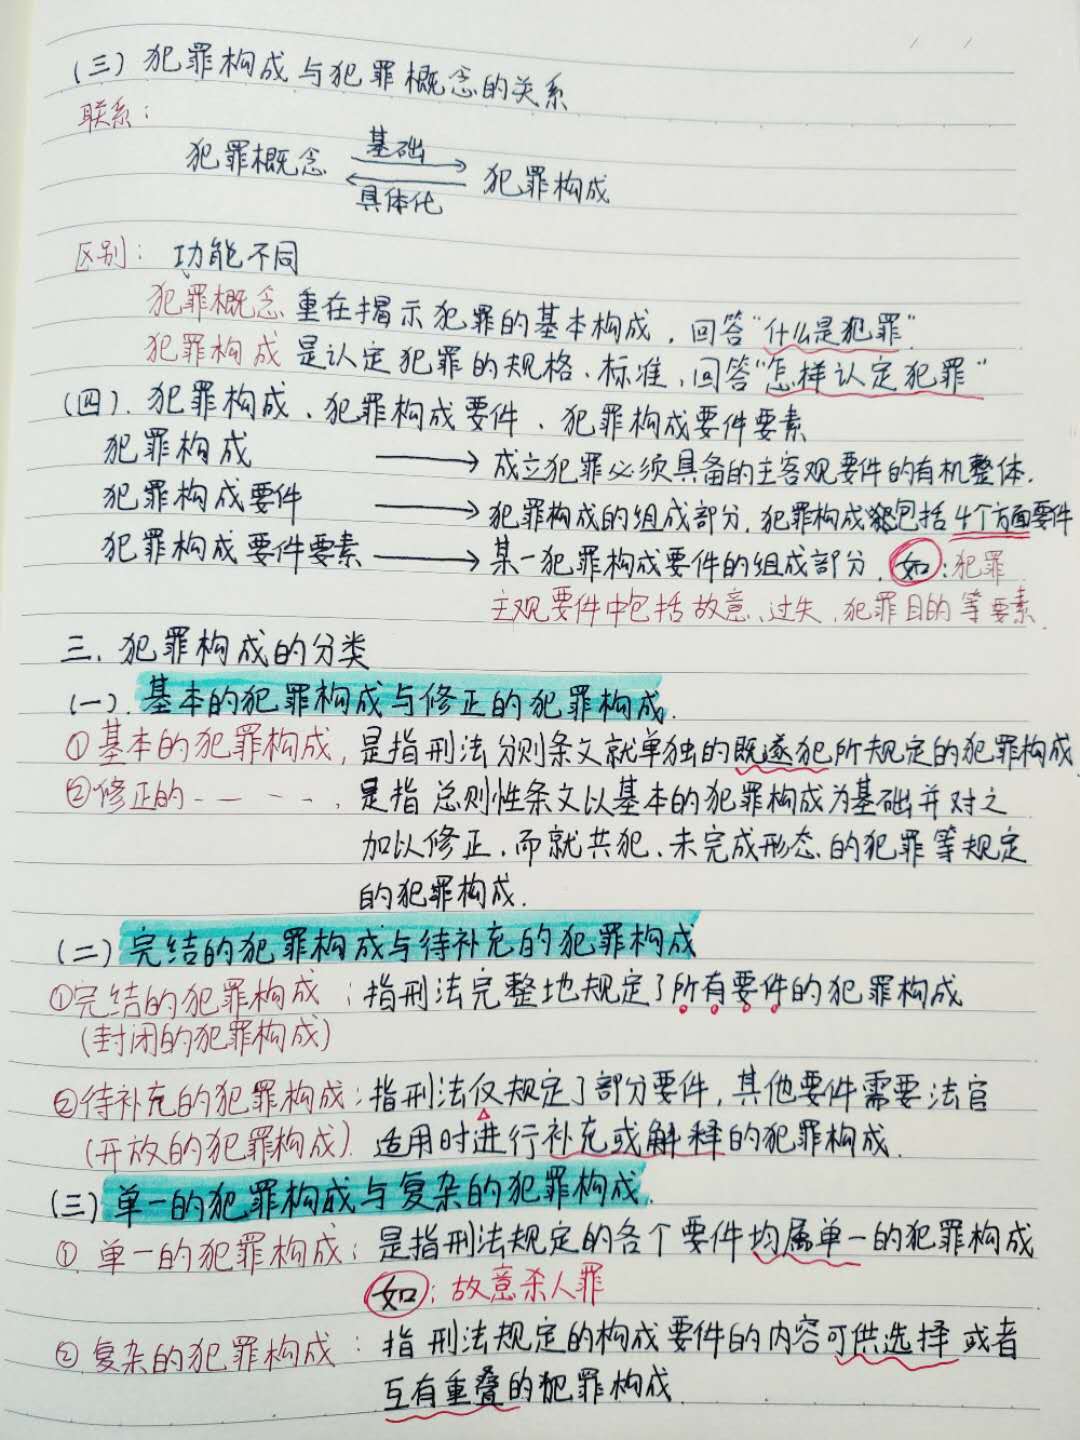 （三）犯罪构成与犯罪概念的关系
联系：
犯罪概念 基础 犯罪构成
具体化
区别：功能不同
犯罪概念重在揭示犯罪的基本构成，回答“什么是犯罪”
犯罪构成是认定犯罪的规格、标准，回答“怎样认定犯罪”
（四）．犯罪构成、犯罪构成要件、犯罪构成要件要素
犯罪构成 → 成立犯罪必须具备的主客观要件的有机整体．
犯罪构成要件 → 犯罪构成的组成部分．犯罪构成包括4个方面要件
犯罪构成要件要素 → 某一犯罪构成要件的组成部分．如：犯罪
主观要件中包括故意、过失、犯罪目的等要素．
三．犯罪构成的分类
（一）．基本的犯罪构成与修正的犯罪构成．
①基本的犯罪构成，是指刑法分则条文就单独的既遂犯所规定的犯罪构成
②修正的－－－－，是指总则性条文以基本的犯罪构成为基础并对之
加以修正．而就共犯、未完成形态的犯罪等规定
的犯罪构成．
（二）完结的犯罪构成与待补充的犯罪构成
①完结的犯罪构成：指刑法完整地规定了所有要件的犯罪构成
（封闭的犯罪构成）
②待补充的犯罪构成：指刑法仅规定了部分要件，其他要件需要法官
（开放的犯罪构成）．适用时进行补充或解释的犯罪构成．
（三）单一的犯罪构成与复杂的犯罪构成．
①单一的犯罪构成：是指刑法规定的各个要件均属单一的犯罪构成
如：故意杀人罪
②复杂的犯罪构成：指刑法规定的构成要件的内容可供选择或者
互有重叠的犯罪构成．